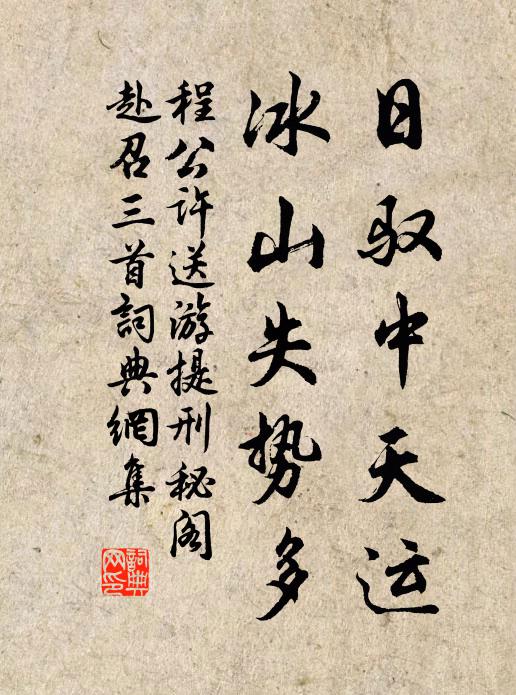 日驭中天运
冰山失势多
程公许送游提刑秘阁
赴召三首詞典網集
詞典网印